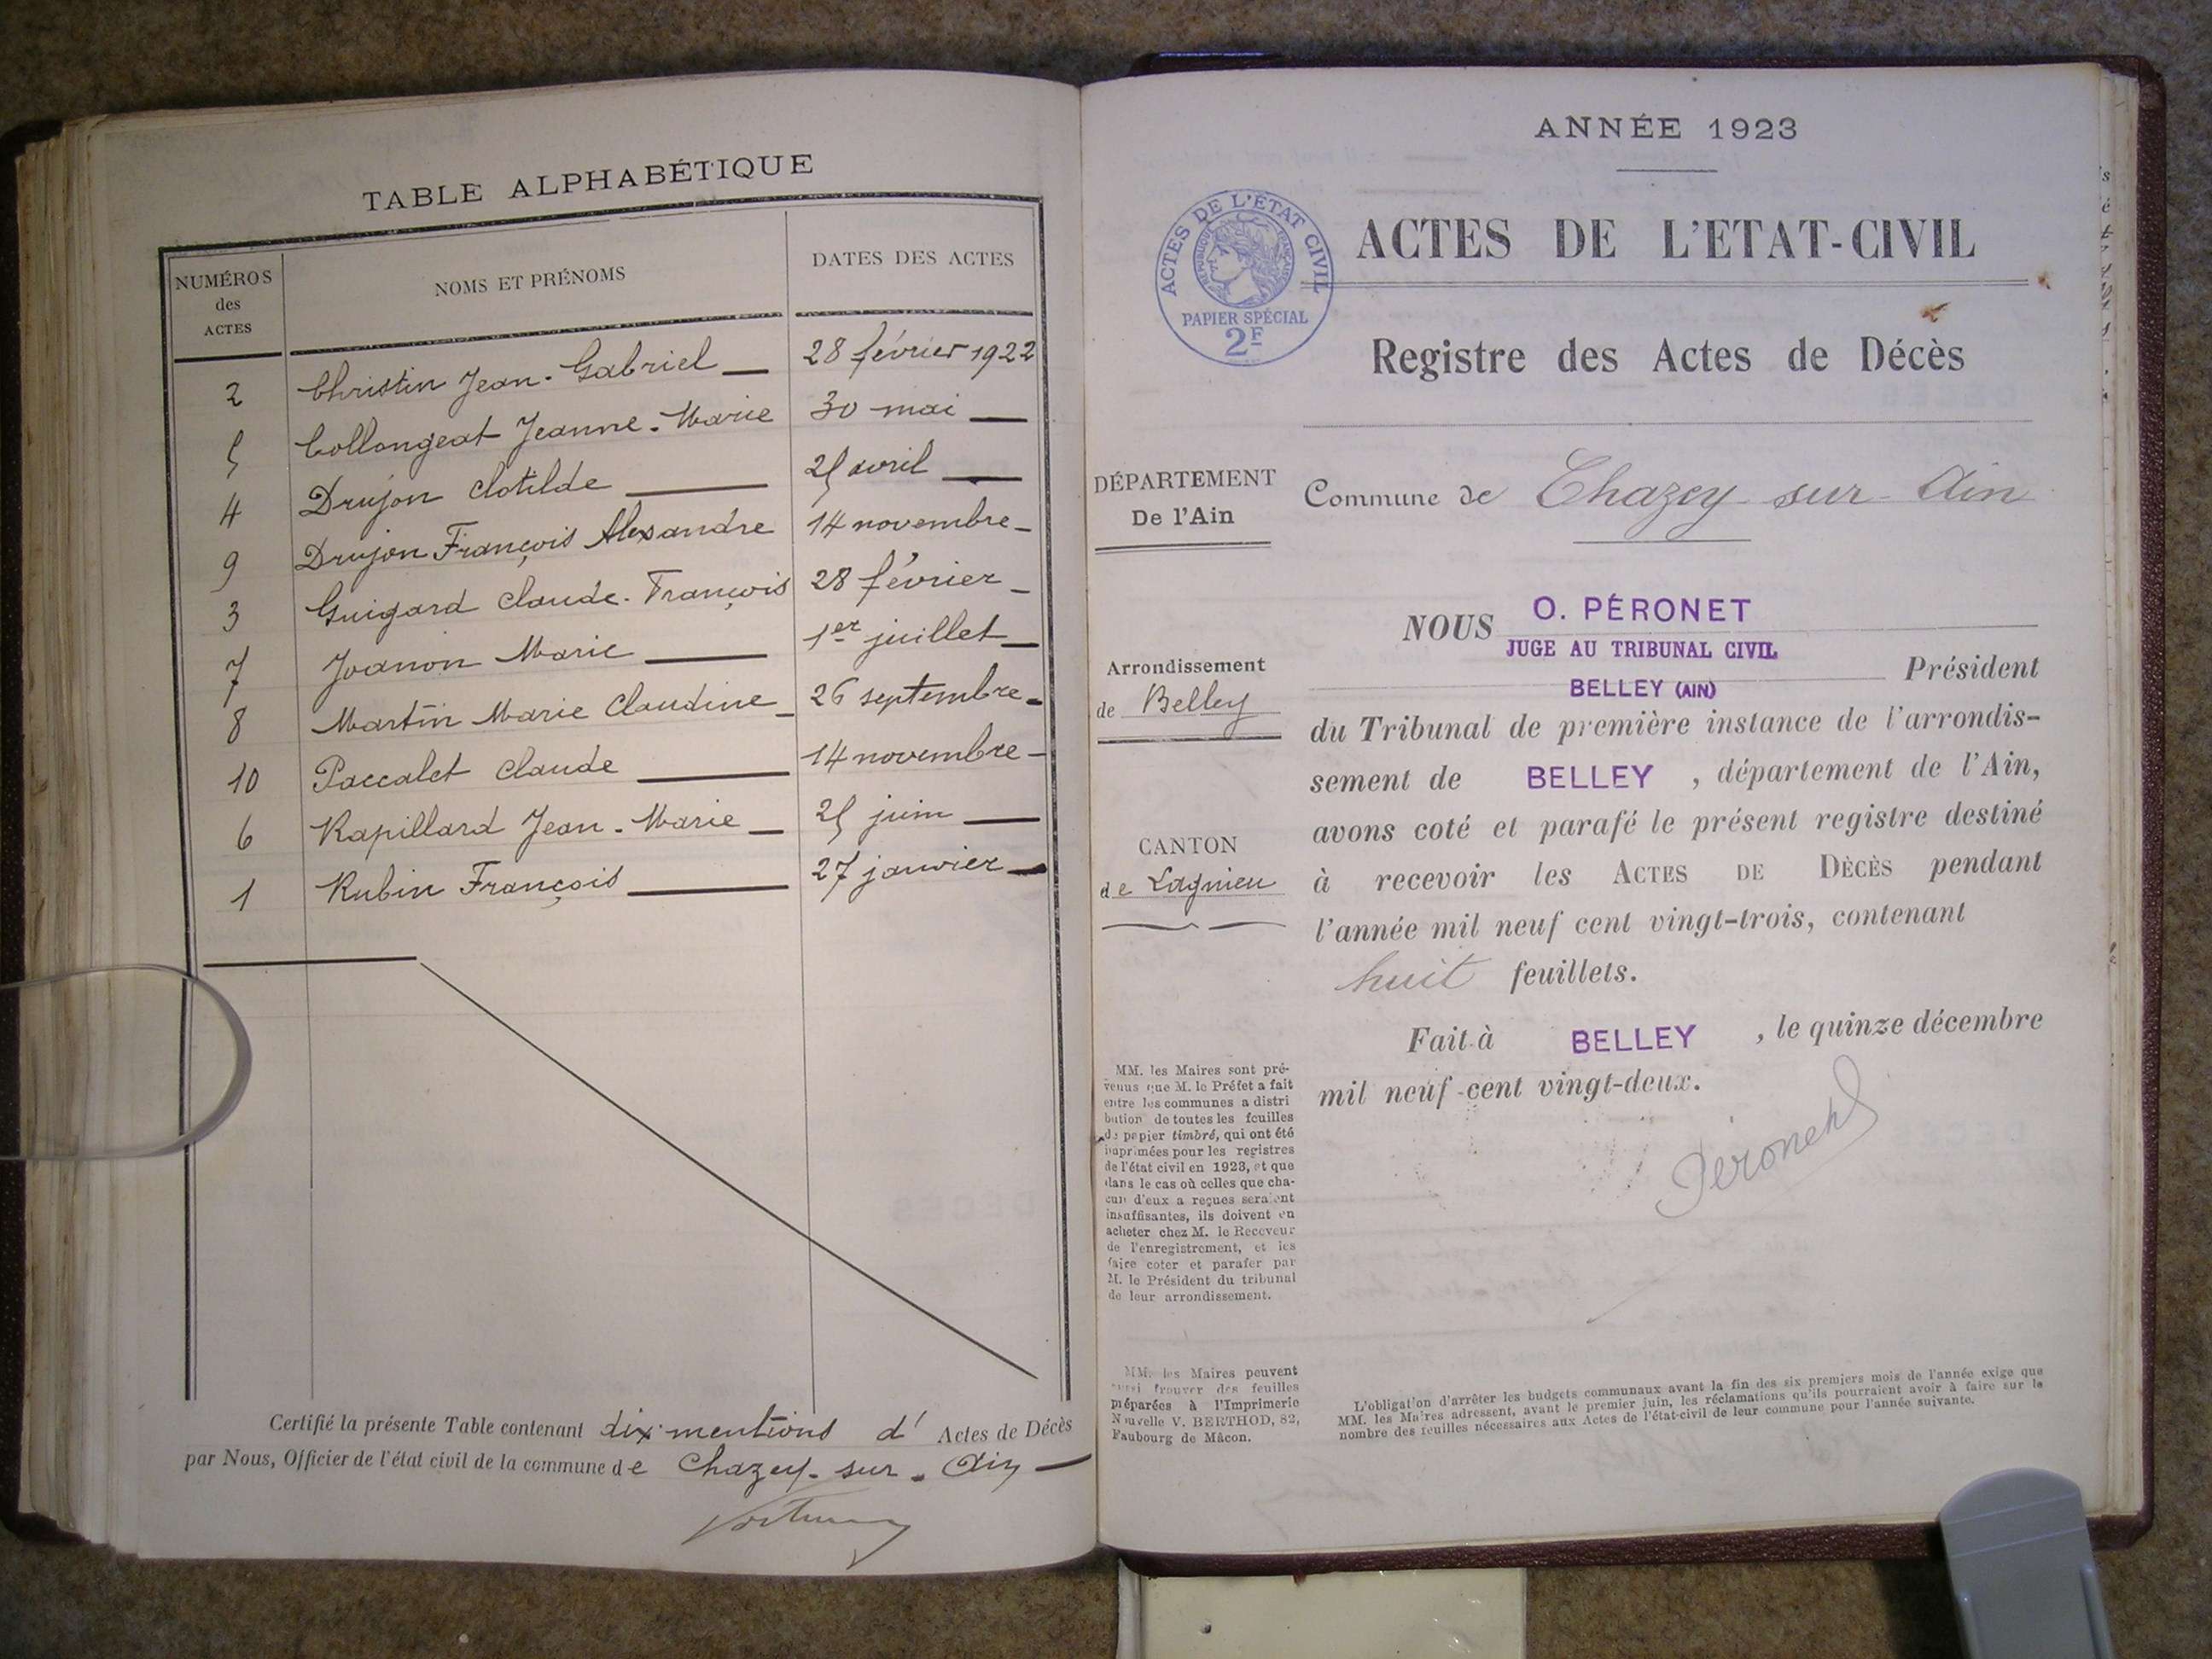 TABLE ALPHABÉTIQUE
NUMÉROS des ACTES NOMS ET PRÉNOMS DATES DES ACTES
2 Christin Jean-Gabriel 28 février 1922
5 Collongeat Jeanne-Marie 30 mai
4 Drujon Clotilde 25 avril
9 Drujon François Alexandre 14 novembre
3 Guigard Claude-François 28 février
7 Joanon Marie 1er juillet
8 Martin Marie Claudine 26 septembre
10 Paccalet Claude 14 novembre
6 Rapillard Jean-Marie 25 juin
1 Rubin François 27 janvier
Certifié la présente Table contenant dix mentions d' Actes de Décès
par Nous, Officier de l'état civil de la commune de Chazey-sur-Ain
ANNÉE 1923
ACTES DE L'ÉTAT CIVIL
RÉPUBLIQUE FRANÇAISE
PAPIER SPÉCIAL
2F
ACTES DE L'ETAT-CIVIL
Registre des Actes de Décès
DÉPARTEMENT
De l'Ain
Commune de Chazey-sur-Ain
Arrondissement
de Belley
CANTON
de Lagnieu
NOUS O. PÉRONET
JUGE AU TRIBUNAL CIVIL
BELLEY (AIN) Président
du Tribunal de première instance de l'arrondis-
sement de BELLEY , département de l'Ain,
avons coté et parafé le présent registre destiné
à recevoir les ACTES DE DÉCÈS pendant
l'année mil neuf cent vingt-trois, contenant
huit feuillets.
Fait à BELLEY , le quinze décembre
mil neuf-cent vingt-deux.
Péronet
MM. les Maires sont pré-
venus que M. le Préfet a fait
entre les communes a distri
bution de toutes les feuilles
de papier timbré, qui ont été
imprimées pour les registres
de l'état civil en 1923, et que
dans le cas où celles que cha-
cun d'eux a reçues seraient
insuffisantes, ils doivent en
acheter chez M. le Receveur
de l'enregistrement, et les
faire coter et parafer par
M. le Président du tribunal
de leur arrondissement.
MM. les Maires peuvent
aussi trouver des feuilles
préparées à l'Imprimerie
Nouvelle V. BERTHOD, 82,
Faubourg de Mâcon.
L'obligation d'arrêter les budgets communaux avant la fin des six premiers mois de l'année exige que
MM. les Maires adressent, avant le premier juin, les réclamations qu'ils pourraient avoir à faire sur le
nombre des feuilles nécessaires aux Actes de l'état-civil de leur commune pour l'année suivante.